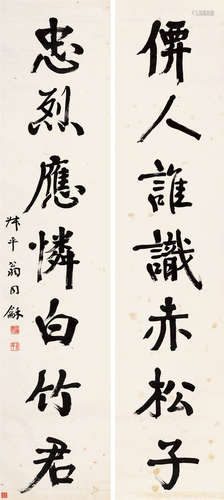 僊人誰識赤松子
忠烈應憐白竹君
叔平翁同龢